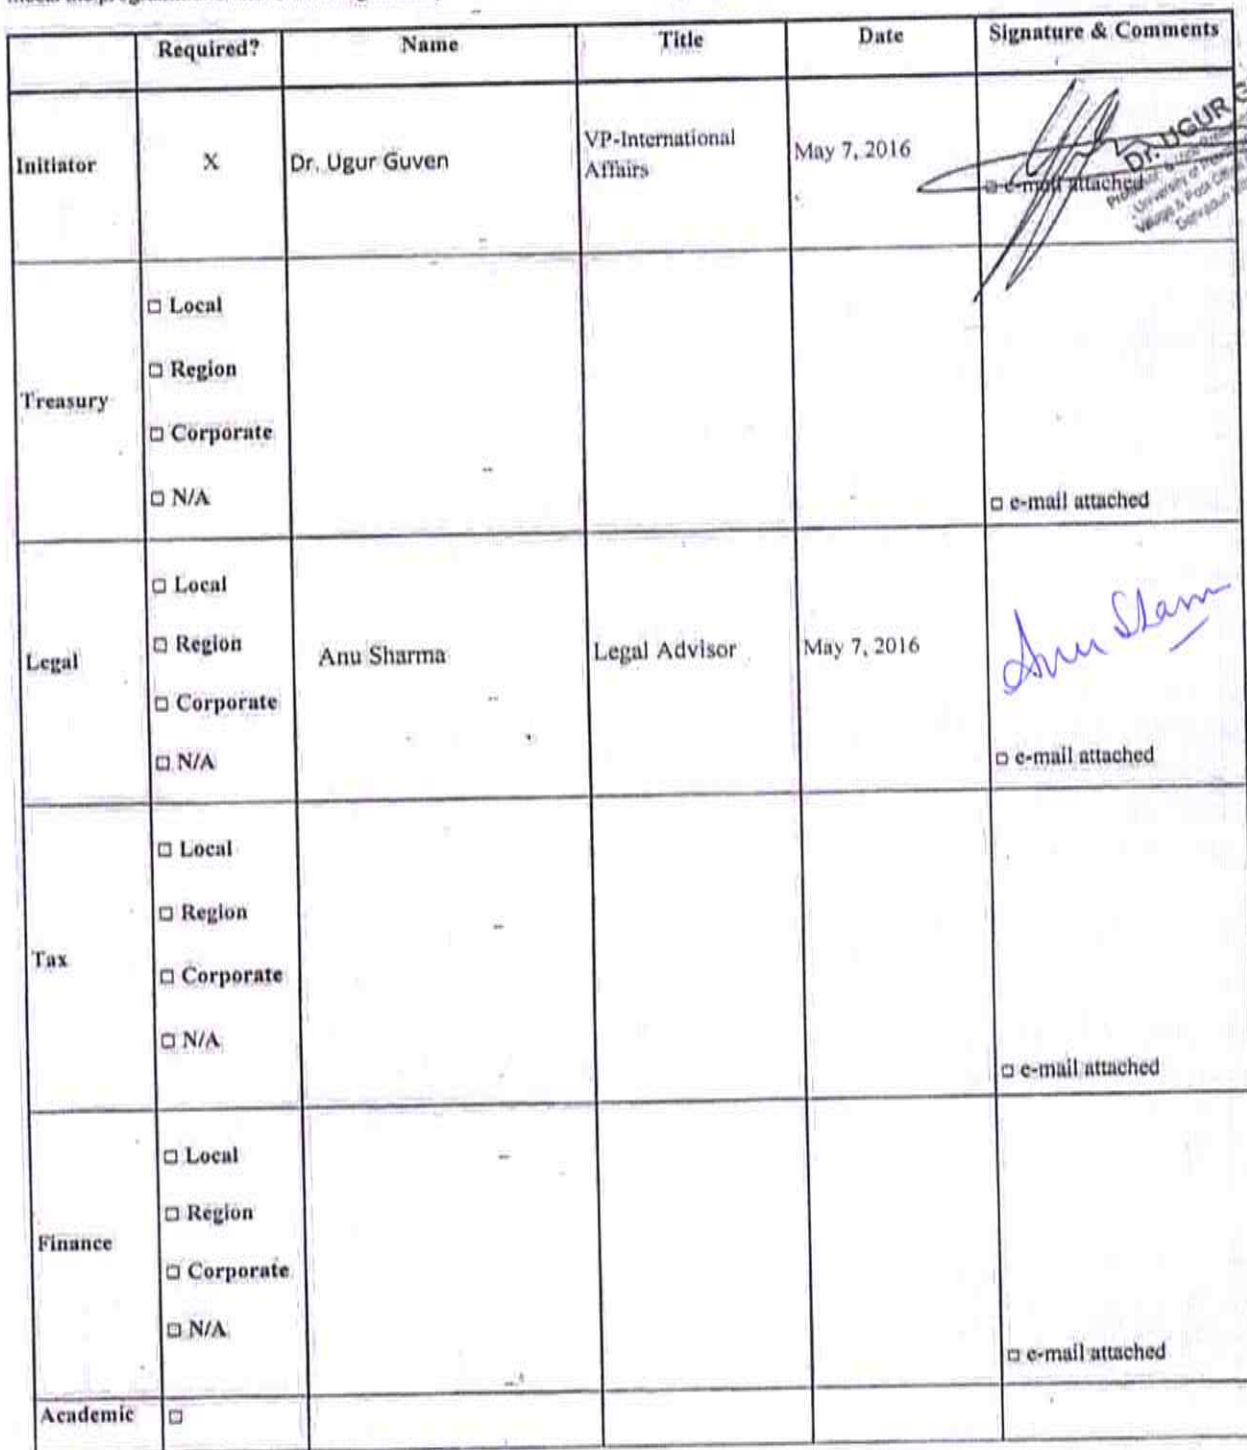 Required?
Name
Title
Date
Signature & Comments
Initiator
X
Dr. Ugur Guven
VP-International
Affairs
May 7, 2016
□ e-mail attached
Dr. UGUR G
University of
Village & Post Office
Treasury
□ Local
□ Region
□ Corporate
□ N/A
□ e-mail attached
Legal
□ Local
□ Region
□ Corporate
□ N/A
Anu Sharma
Legal Advisor
May 7, 2016
Anu Sharm
□ e-mail attached
Tax
□ Local
□ Region
□ Corporate
□ N/A
□ e-mail attached
Finance
□ Local
□ Region
□ Corporate
□ N/A
□ e-mail attached
Academic
□